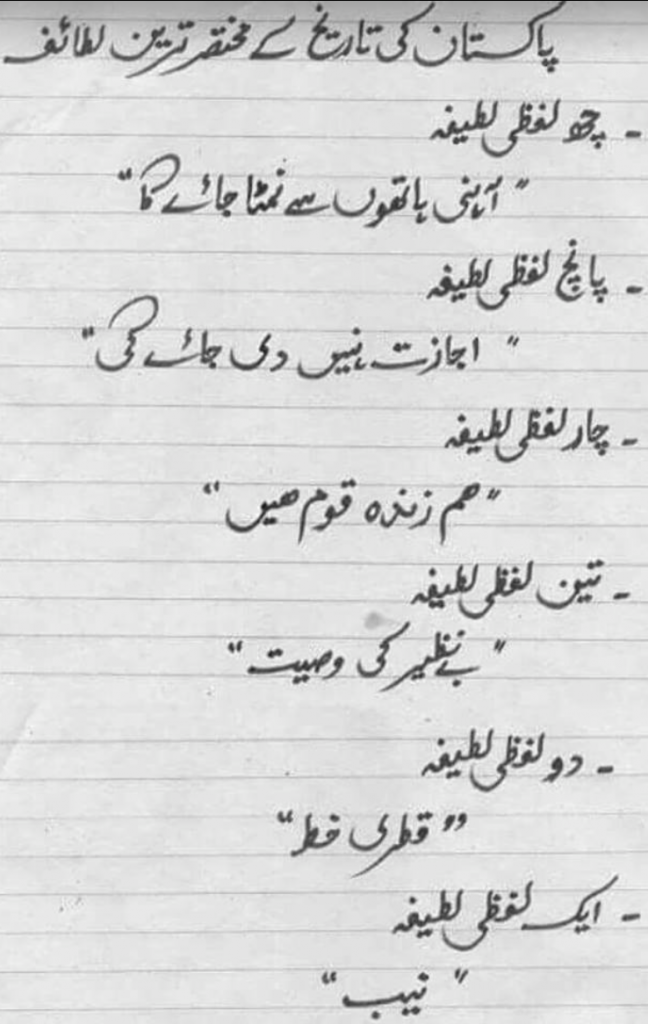 پاکستان کی تاریخ کے مختصر ترین لطائف
- چھ لفظی لطیفہ
"آہنی ہاتھوں سے نمٹا جائے گا"
- پانچ لفظی لطیفہ
"اجازت نہیں دی جائے گی"
- چار لفظی لطیفہ
"ھم زندہ قوم ھیں"
- تین لفظی لطیفہ
"بےنظیر کی وصیت"
- دو لفظی لطیفہ
"قطری خط"
- ایک لفظی لطیفہ
"نیب"